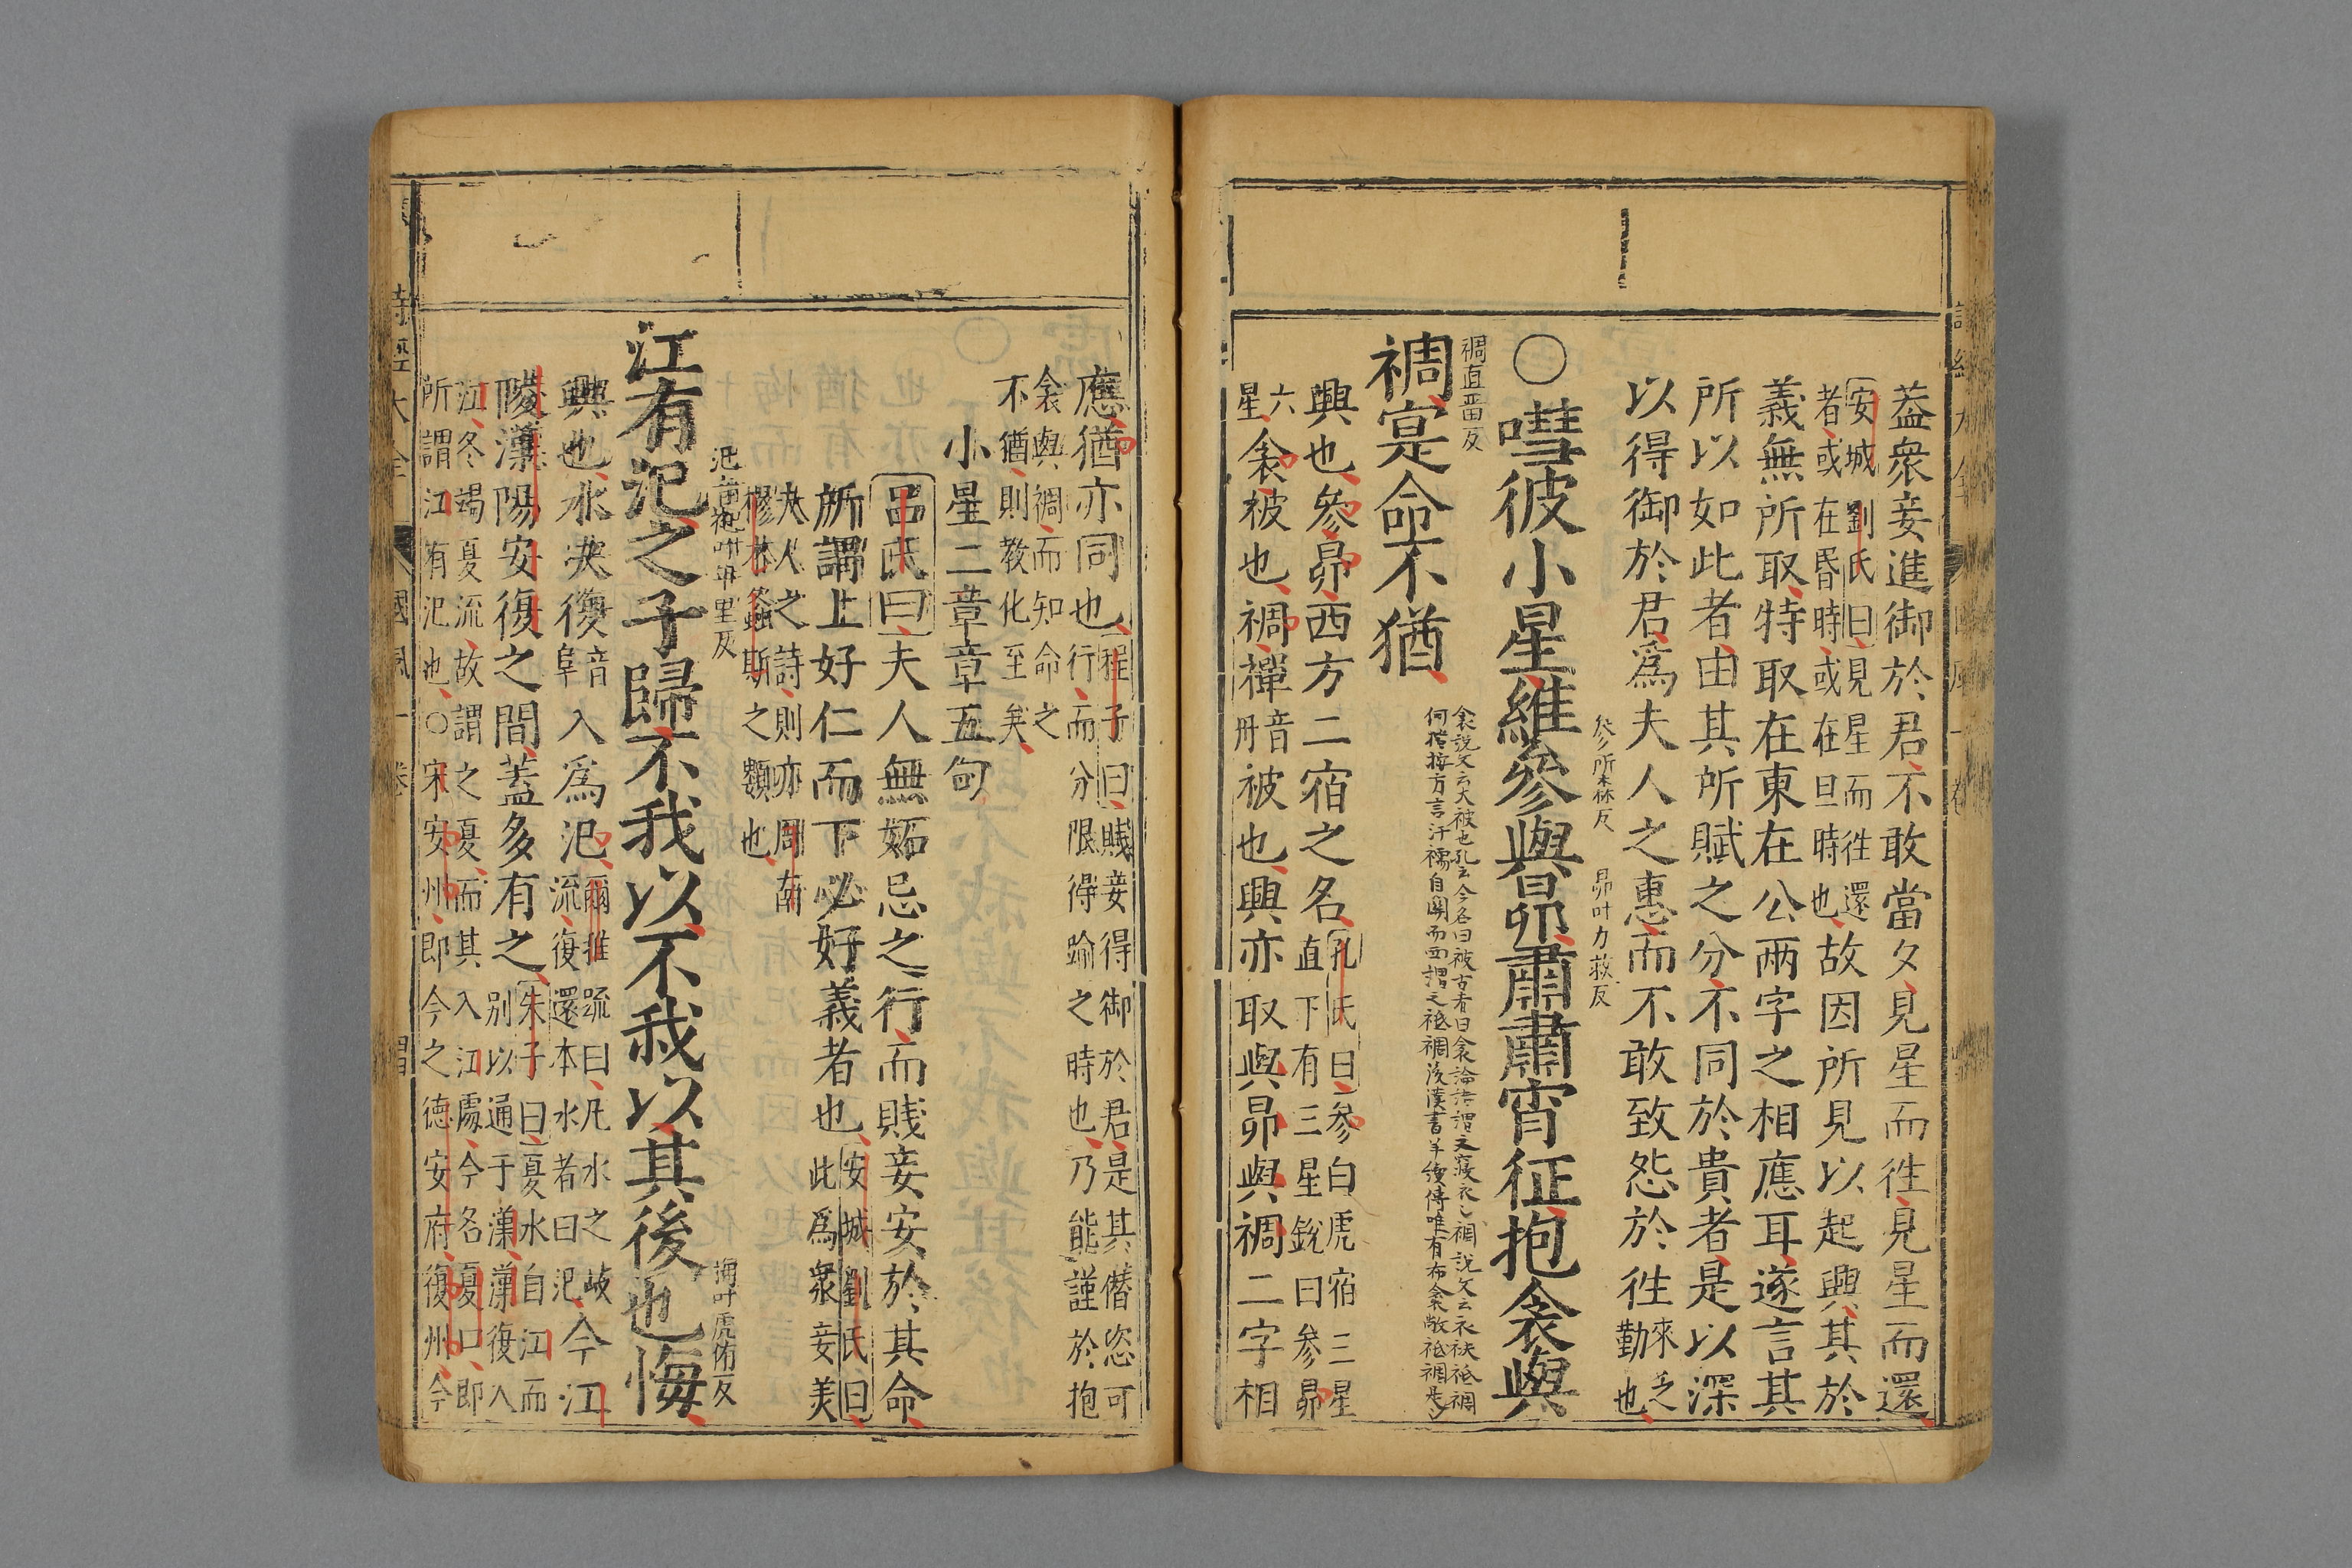 蓋衆妾進御於君不敢當夕見星而徃見星而還
安城劉氏曰見星而徃還
者或在昏時或在旦時也
故因所見以起興其於
義無所取特取在東在公兩字之相應耳遂言其
所以如此者由其所賦之分不同於貴者是以深
以得御於君爲夫人之惠而不敢致怨於徃
來之
勤也
參所森反 昴叶力求反
○嘒彼小星維參與昴肅肅宵征抱衾與
裯直畱反
裯寔命不猶
衾說文云大被也孔云今名曰被古者曰衾論語謂之寢衣裯說文云衣袂袛裯
何楷按方言汗襦自關而西謂之袛裯後漢書羊續傳唯有布衾敝袛裯是也
興也參昴西方二宿之名
孔氏曰參白虎宿三星
直下有三星銳曰參昴
六
星
衾被也裯襌
音
丹
被也興亦取與昴與裯二字相
應猶亦同也
程子曰賤妾得御於君是其僭恣可
行而分限得踰之時也乃能謹於抱
衾與裯而知命之
不猶則敎化至矣
小星二章章五句
呂氏曰夫人無妬忌之行而賤妾安於其命
所謂上好仁而下必好義者也
安城劉氏曰
此爲衆妾美
夫人之詩則亦周南
樛木螽斯之類也
汜音祀叶羊里反 悔叶虎洧反
江有汜之子歸不我以不我以其後也悔
興也水決復
音
阜
入爲汜
爾雅疏曰凡水之岐
流復還本水者曰汜
今江
陵漢陽安復之間蓋多有之
朱子曰夏水自江而
别以通于漢漢復入
江冬竭夏流故謂之夏而其入江處今名夏口即
所謂江有汜也○宋安州即今之德安府復州今
詩經大全 國風一卷